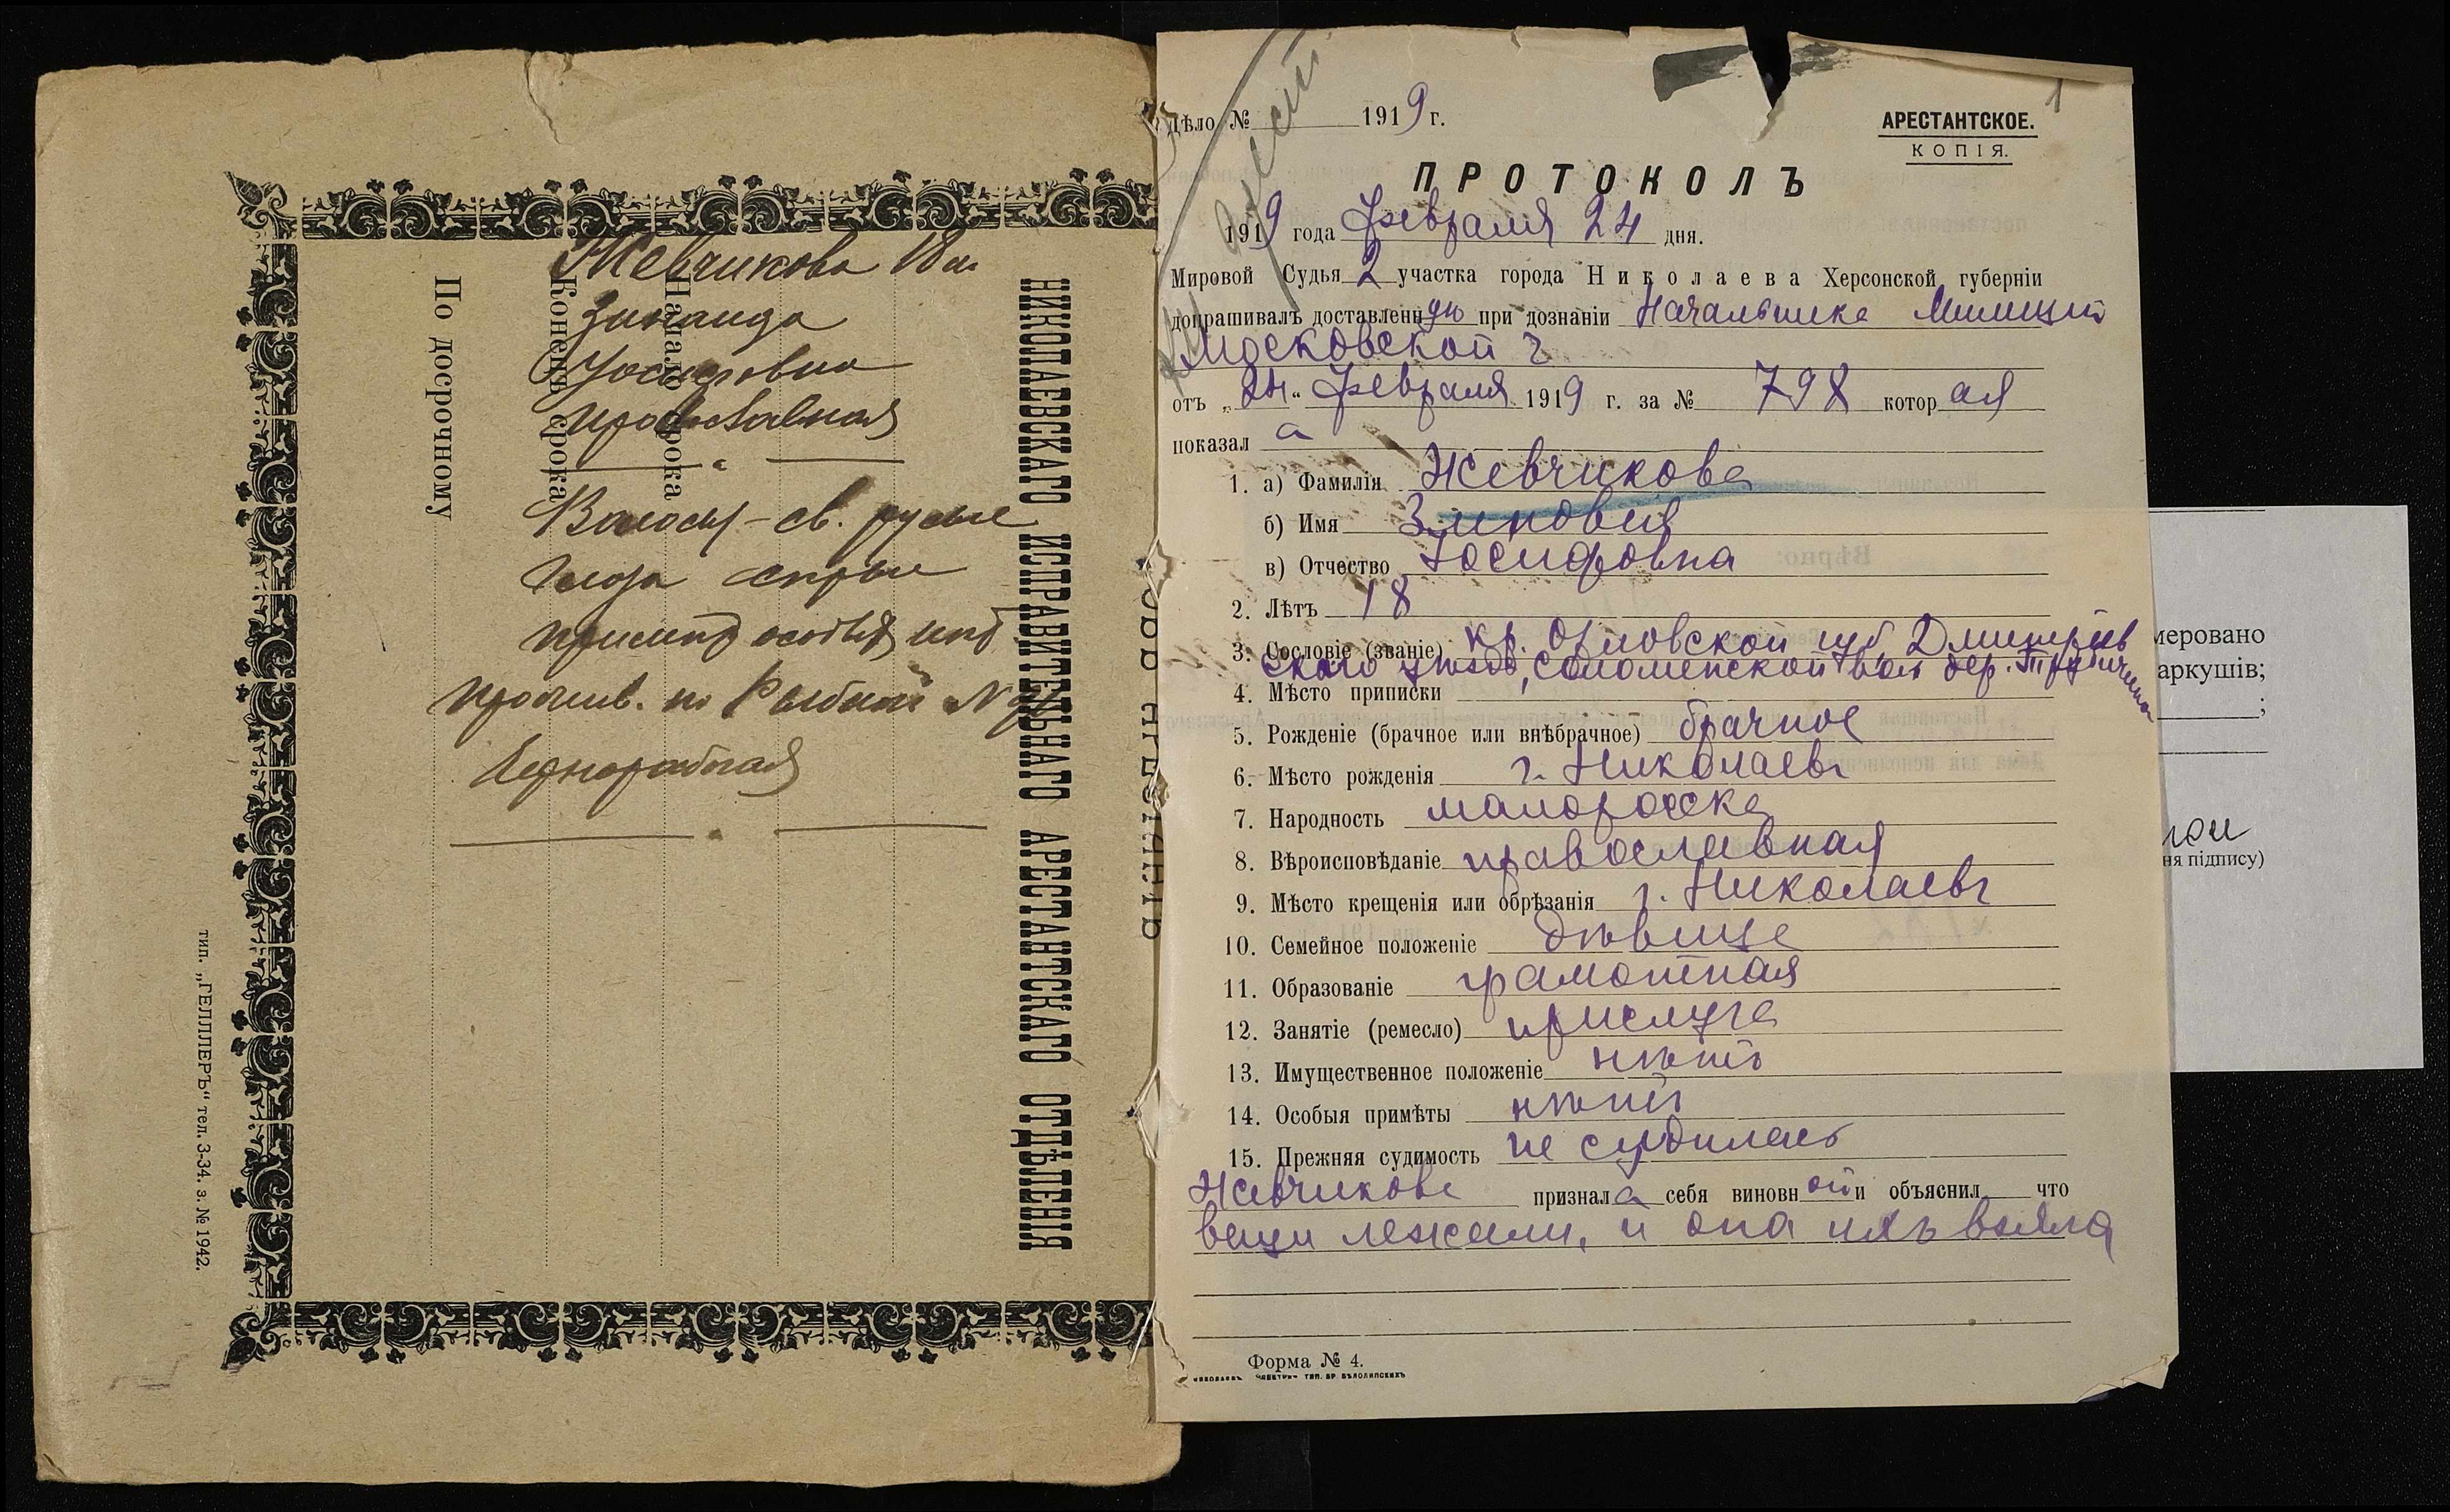 Жевчикова 18 л.
Зинаида
Іосифовна
православная
Волосы - св. русые
Глаза серые
примѣтъ особыхъ нѣтъ
прожив. по Рыбной №
Чернорабочая
Начало срока
Конецъ срока
По досрочному
НИКОЛАЕВСКАГО ИСПРАВИТЕЛЬНАГО АРЕСТАНТСКАГО ОТДѢЛЕНІЯ
тип. „ГЕЛЛЕРЪ“ тел. 3-34. з. № 1942.
1
Дѣло № 1919 г.
АРЕСТАНТСКОЕ.
КОПІЯ.
ПРОТОКОЛЪ
1919 года Февраля 24 дня.
Мировой Судья 2 участка города Николаева Херсонской губерніи
допрашивалъ доставленную при дознаніи Начальника Милиціи
Московской ч
отъ „24“ Февраля 1919 г. за № 798 которая
показала
1. а) Фамилія Жевчикова
б) Имя Зиновия
в) Отчество Іосифовна
2. Лѣтъ 18
3. Сословіе (званіе) кр. Орловской губ, Дмитріев
скаго уѣзда, Соломенской вол дер.
4. Мѣсто приписки
5. Рожденіе (брачное или внѣбрачное) брачное
6. Мѣсто рожденія г. Николаевъ
7. Народность малоросска
8. Вѣроисповѣданіе православная
9. Мѣсто крещенія или обрѣзанія г. Николаевъ
10. Семейное положеніе дѣвица
11. Образованіе грамотная
12. Занятіе (ремесло) прислуга
13. Имущественное положеніе нѣтъ
14. Особыя примѣты нѣтъ
15. Прежняя судимость не судилась
Жевчикова признала себя виновной и объяснил что
вещи лежали, и она ихъ взяла
Форма № 4.
меровано
аркушів;
;
ня підпису)